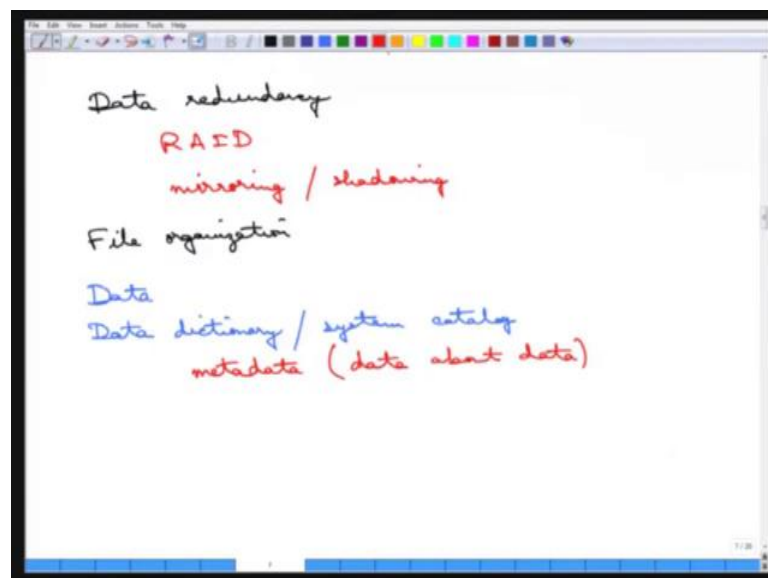 File Edit View Insert Actions Tools Help
Data redundancy
RAID
mirroring / shadowing
File organization
Data
Data dictionary / system catalog
metadata (data about data)
7/20
7